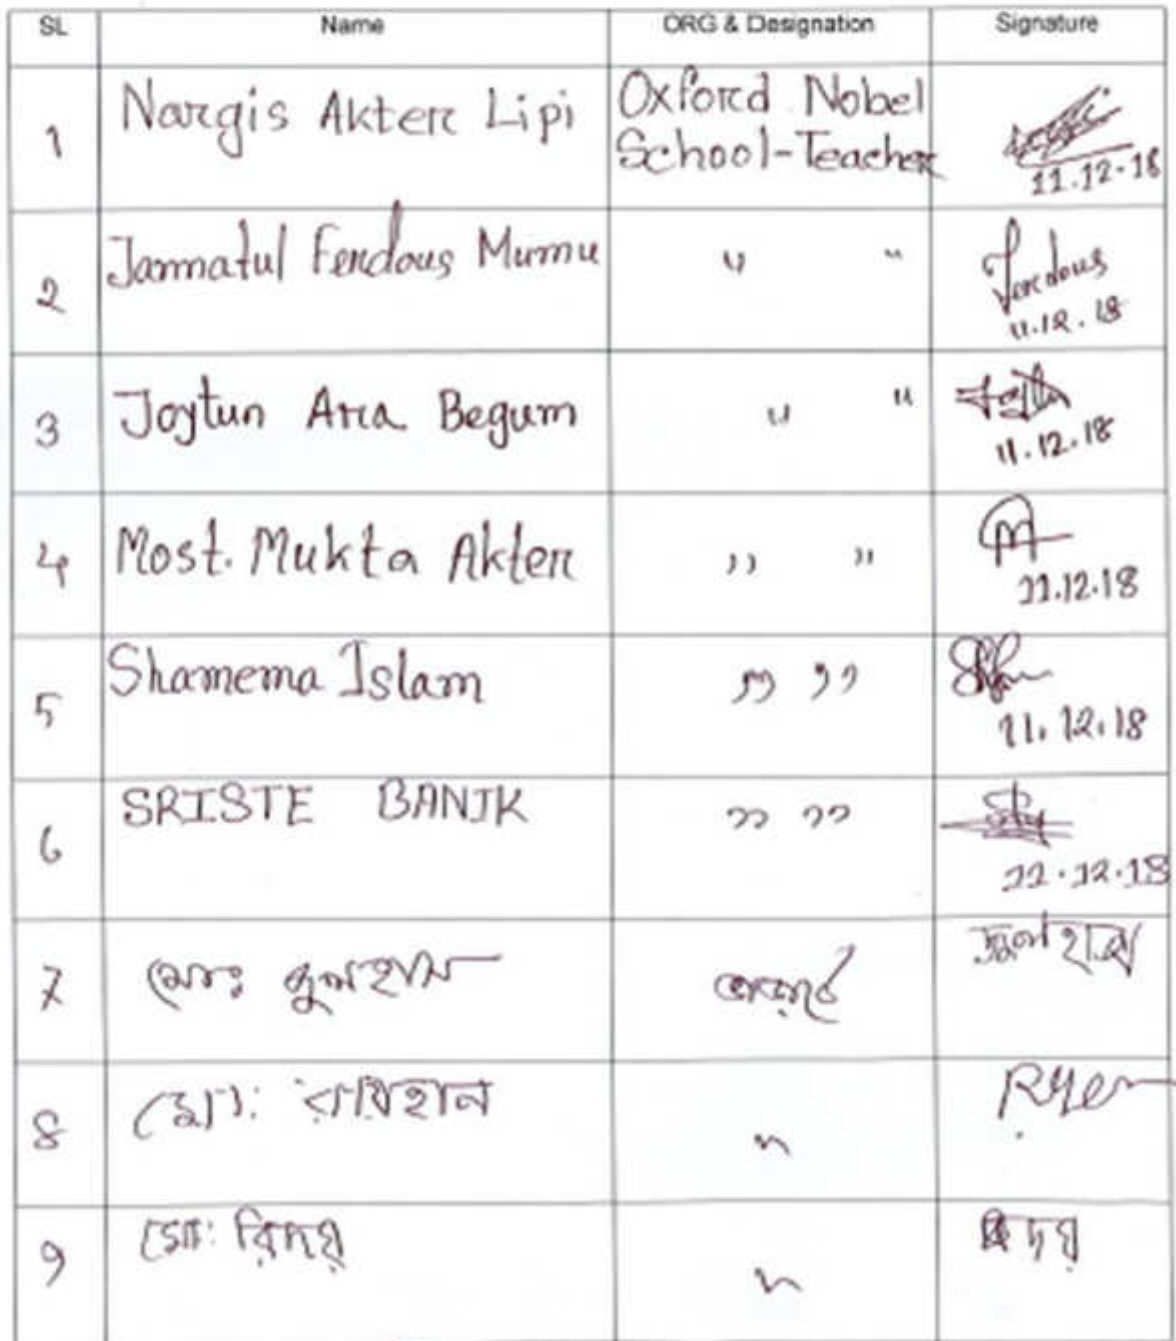 SL Name ORG & Designation Signature
1 Nargis Akter Lipi Oxford Nobel School-Teacher 11.12.18
2 Jannatul Ferdous Mumu " " Ferdous 11.12.18
3 Joytun Ara Begum " " 11.12.18
4 Most. Mukta Akter " " 11.12.18
5 Shamema Islam " " 11.12.18
6 SRISTE BANIK " " 11.12.18
7 মোঃ
8 মো: রায়হান "
9 মো: রিদয় " রিদয়